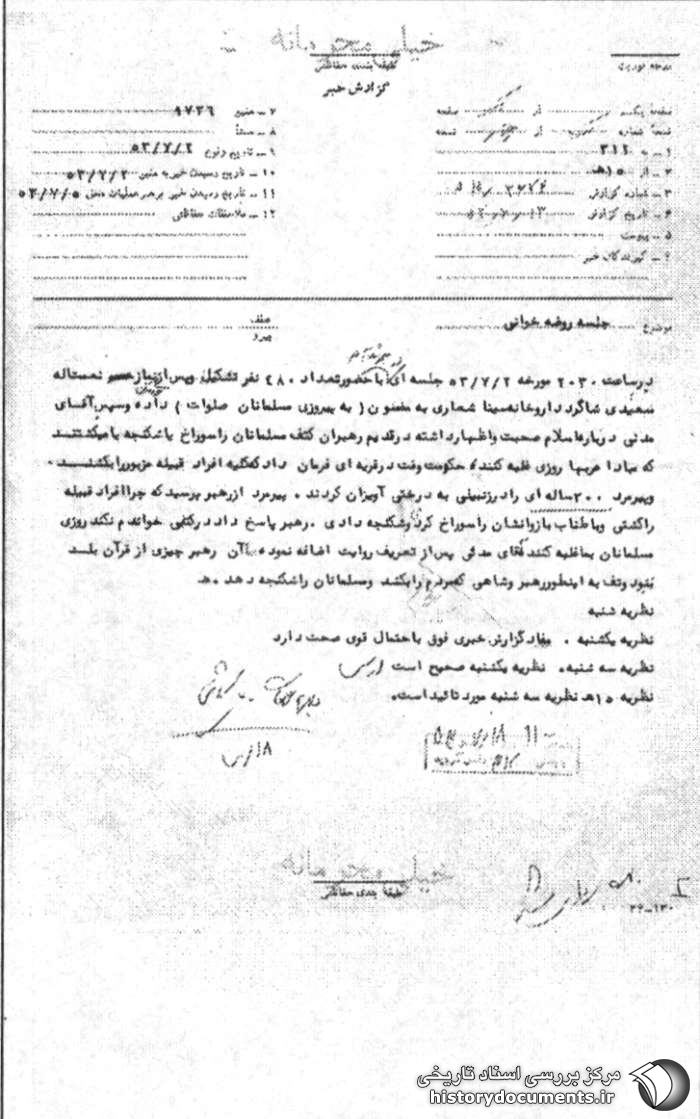 خیلی محرمانه
طبقه بندی حفاظتی
گزارش خبر
صفحه یک از صفحه
نسخه شماره از نسخه
۱ ـ به ۳۱۲
۲ ـ از ۱۵ هـ
۳ ـ شماره گزارش
۴ ـ تاریخ گزارش
۵ ـ پیوست
۶ ـ گیرندگان خبر
۷ ـ منبع ۹۷۳۶
۸ ـ منشأ
۹ ـ تاریخ وقوع ۵۳/۷/۲
۱۰ ـ تاریخ رسیدن خبر به منبع ۵۳/۷/۲
۱۱ ـ تاریخ رسیدن خبر به رهبر عملیات محل ۵۳/۷/۵
۱۲ ـ ملاحظات حفاظتی
موضوع جلسه روضه خوانی
در ساعت ۲۰۳۰ مورخه ۵۳/۷/۲ جلسه ای با حضور تعداد ۴۸۰ نفر تشکیل و پس از نماز نعمت اله
سعیدی شاگرد داروخانه سینا شعاری به مضمون ( به پیروزی مسلمانان صلوات ) داده و سپس آقای
مدنی درباره اسلام صحبت و اظهار داشته در قدیم رهبران کتف مسلمانان را سوراخ یا شکنجه یا میکشتند
که مبادا عربها روزی غلبه کنند و حکومت وقت در قریه ای فرمان داد که کلیه افراد قبیله مزبور را بکشنـــد .
و پیرمرد ۲۰۰ ساله ای را در زنبیلی به درختی آویزان کردند . پیرمرد از رهبر پرسید که چرا افراد قبیله
را کشتی و با طناب بازوانشان را سوراخ کرد و شکنجه دادی . رهبر پاسخ داد در کتبی خوانده‌ام نکند روزی
مسلمانان بما غلبه کنند آقای مدنی پس از تعریف روایت اضافه نموده آن رهبر چیزی از قرآن بلد
نبود و تف به اینطور رهبر و شاهی که مردم را بکشد و مسلمانان را شکنجه دهد . هـ
نظریه شنبه
نظریه یکشنبه . مفاد گزارش خبری فوق باحتمال قوی صحت دارد
نظریه سه شنبه . نظریه یکشنبه صحیح است
نظریه ۱۵ هـ نظریه سه شنبه مورد تائید است .
خیلی محرمانه
طبقه بندی حفاظتی
مرکز بررسی اسناد تاریخی
historydocuments.ir